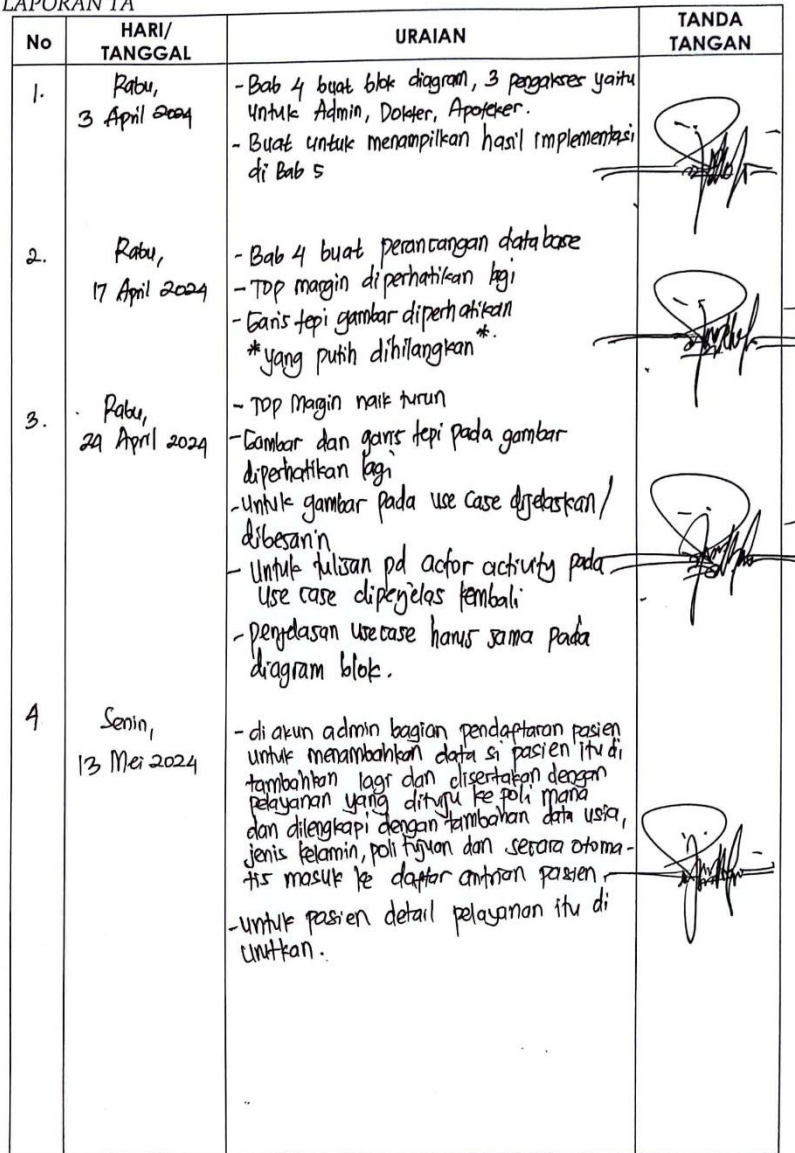 LAPORAN TA
No
HARI/
TANGGAL
URAIAN
TANDA
TANGAN
1.
Rabu,
3 April 2024
- Bab 4 buat blok diagram, 3 pengakses yaitu
untuk Admin, Dokter, Apoteker.
- Buat untuk menampilkan hasil implementasi
di Bab 5
2.
Rabu,
17 April 2024
- Bab 4 buat perancangan database
- Top margin diperhatikan lagi
- Garis tepi gambar diperhatikan
*yang putih dihilangkan*.
3.
Rabu,
24 April 2024
- Top Margin naik turun
- Gambar dan garis tepi pada gambar
diperhatikan lagi
- Untuk gambar pada use case dijelaskan/
dibesarin
- Untuk tulisan pd actor activity pada
use case diperjelas kembali
- penjelasan usecase harus sama pada
diagram blok.
4
Senin,
13 Mei 2024
- di akun admin bagian pendaftaran pasien
untuk menambahkan data si pasien itu di
tambahkan lagi dan disertakan dengan
pelayanan yang dituju ke poli mana
dan dilengkapi dengan tambahan data usia,
jenis kelamin, poli tujuan dan secara otoma-
tis masuk ke daftar antrian pasien.
- untuk pasien detail pelayanan itu di
urutkan.